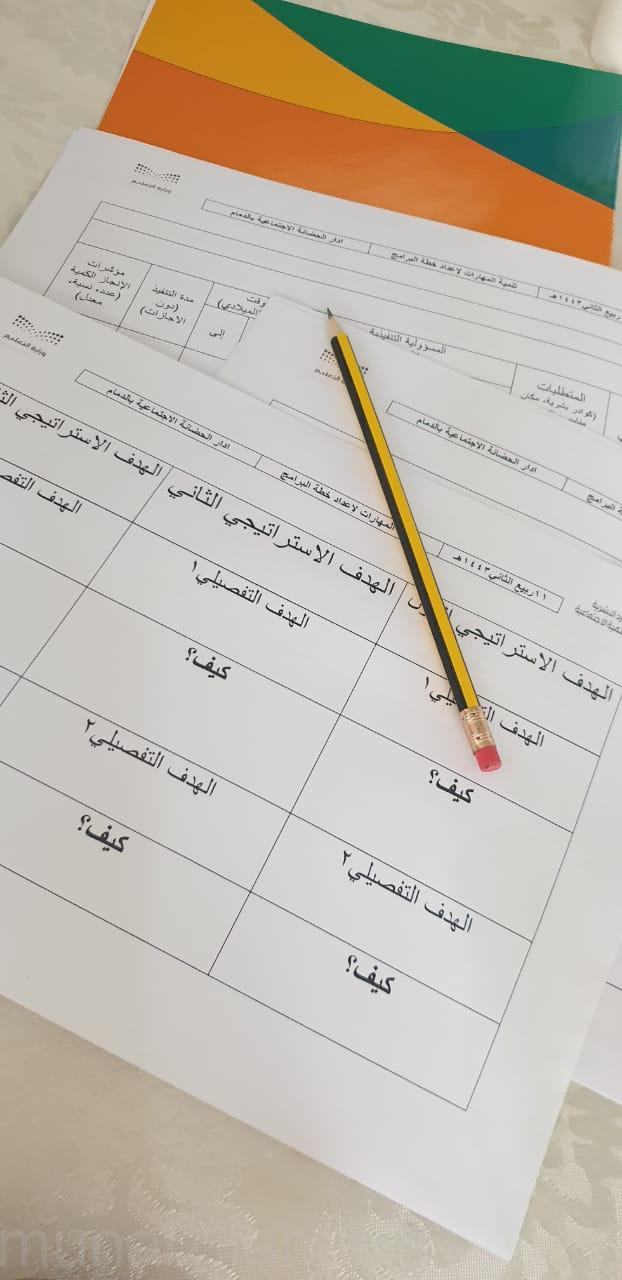 وزارة التعليم
ادار الحضانة الاجتماعية بالدمام
تنمية المهارات لإعداد خطة البرامج
ربيع الثاني ١٤٤٣هـ
مؤشرات
الإنجاز الكمية
(عدد، نسبة،
معدل)
مدة التنفيذ
(دون
الاجازات)
وقت
الميلادي)
إلى
المسؤولية التنفيذية
المتطلبات
(كوادر بشرية، مكان
ادار الحضانة الاجتماعية بالدمام
البرامج
وزارة التعليم
ادار الحضانة الاجتماعية بالدمام
المهارات لإعداد خطة البرامج
١١ ربيع الثاني ١٤٤٣هـ
الهدف الاستراتيجي
الهدف الاستراتيجي الثاني
الهدف الاستراتيجي
الهدف
الهدف التفصيلي١
الهدف
كيف؟
كيف؟
الهدف التفصيلي٢
الهدف التفصيلي٢
كيف؟
كيف؟